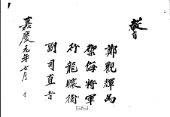 教旨
鄭觀輝為
禦侮將軍
行龍驤衛
副司直者
嘉慶元年七月 日